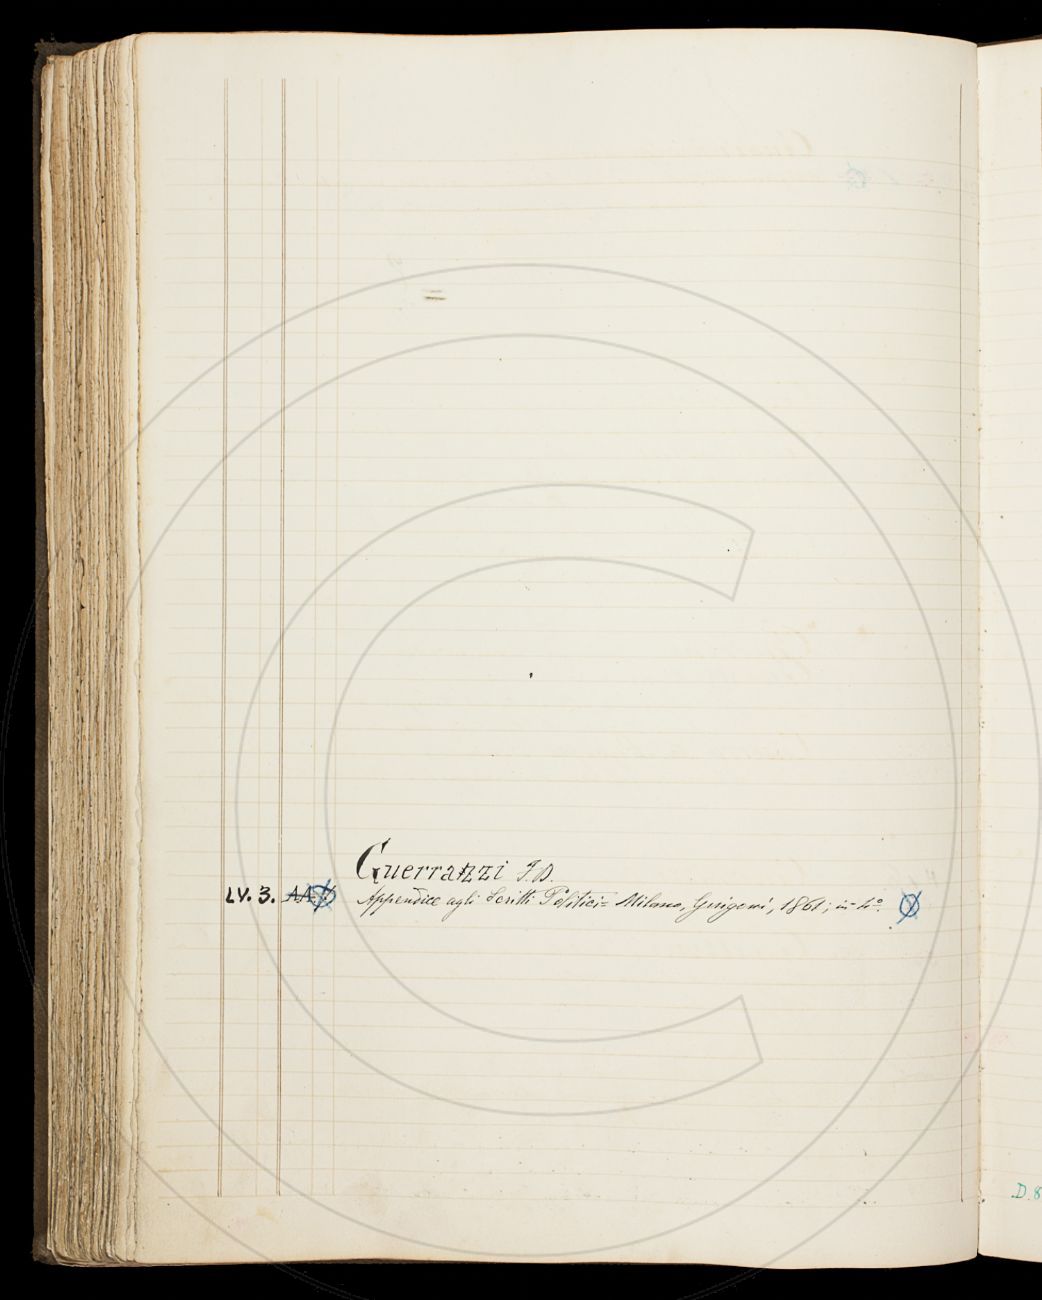 Guerrazzi F. D.
LV. 3. AA Appendice agli Scritti Politici = Milano, 1861; in 4º.
D. 8